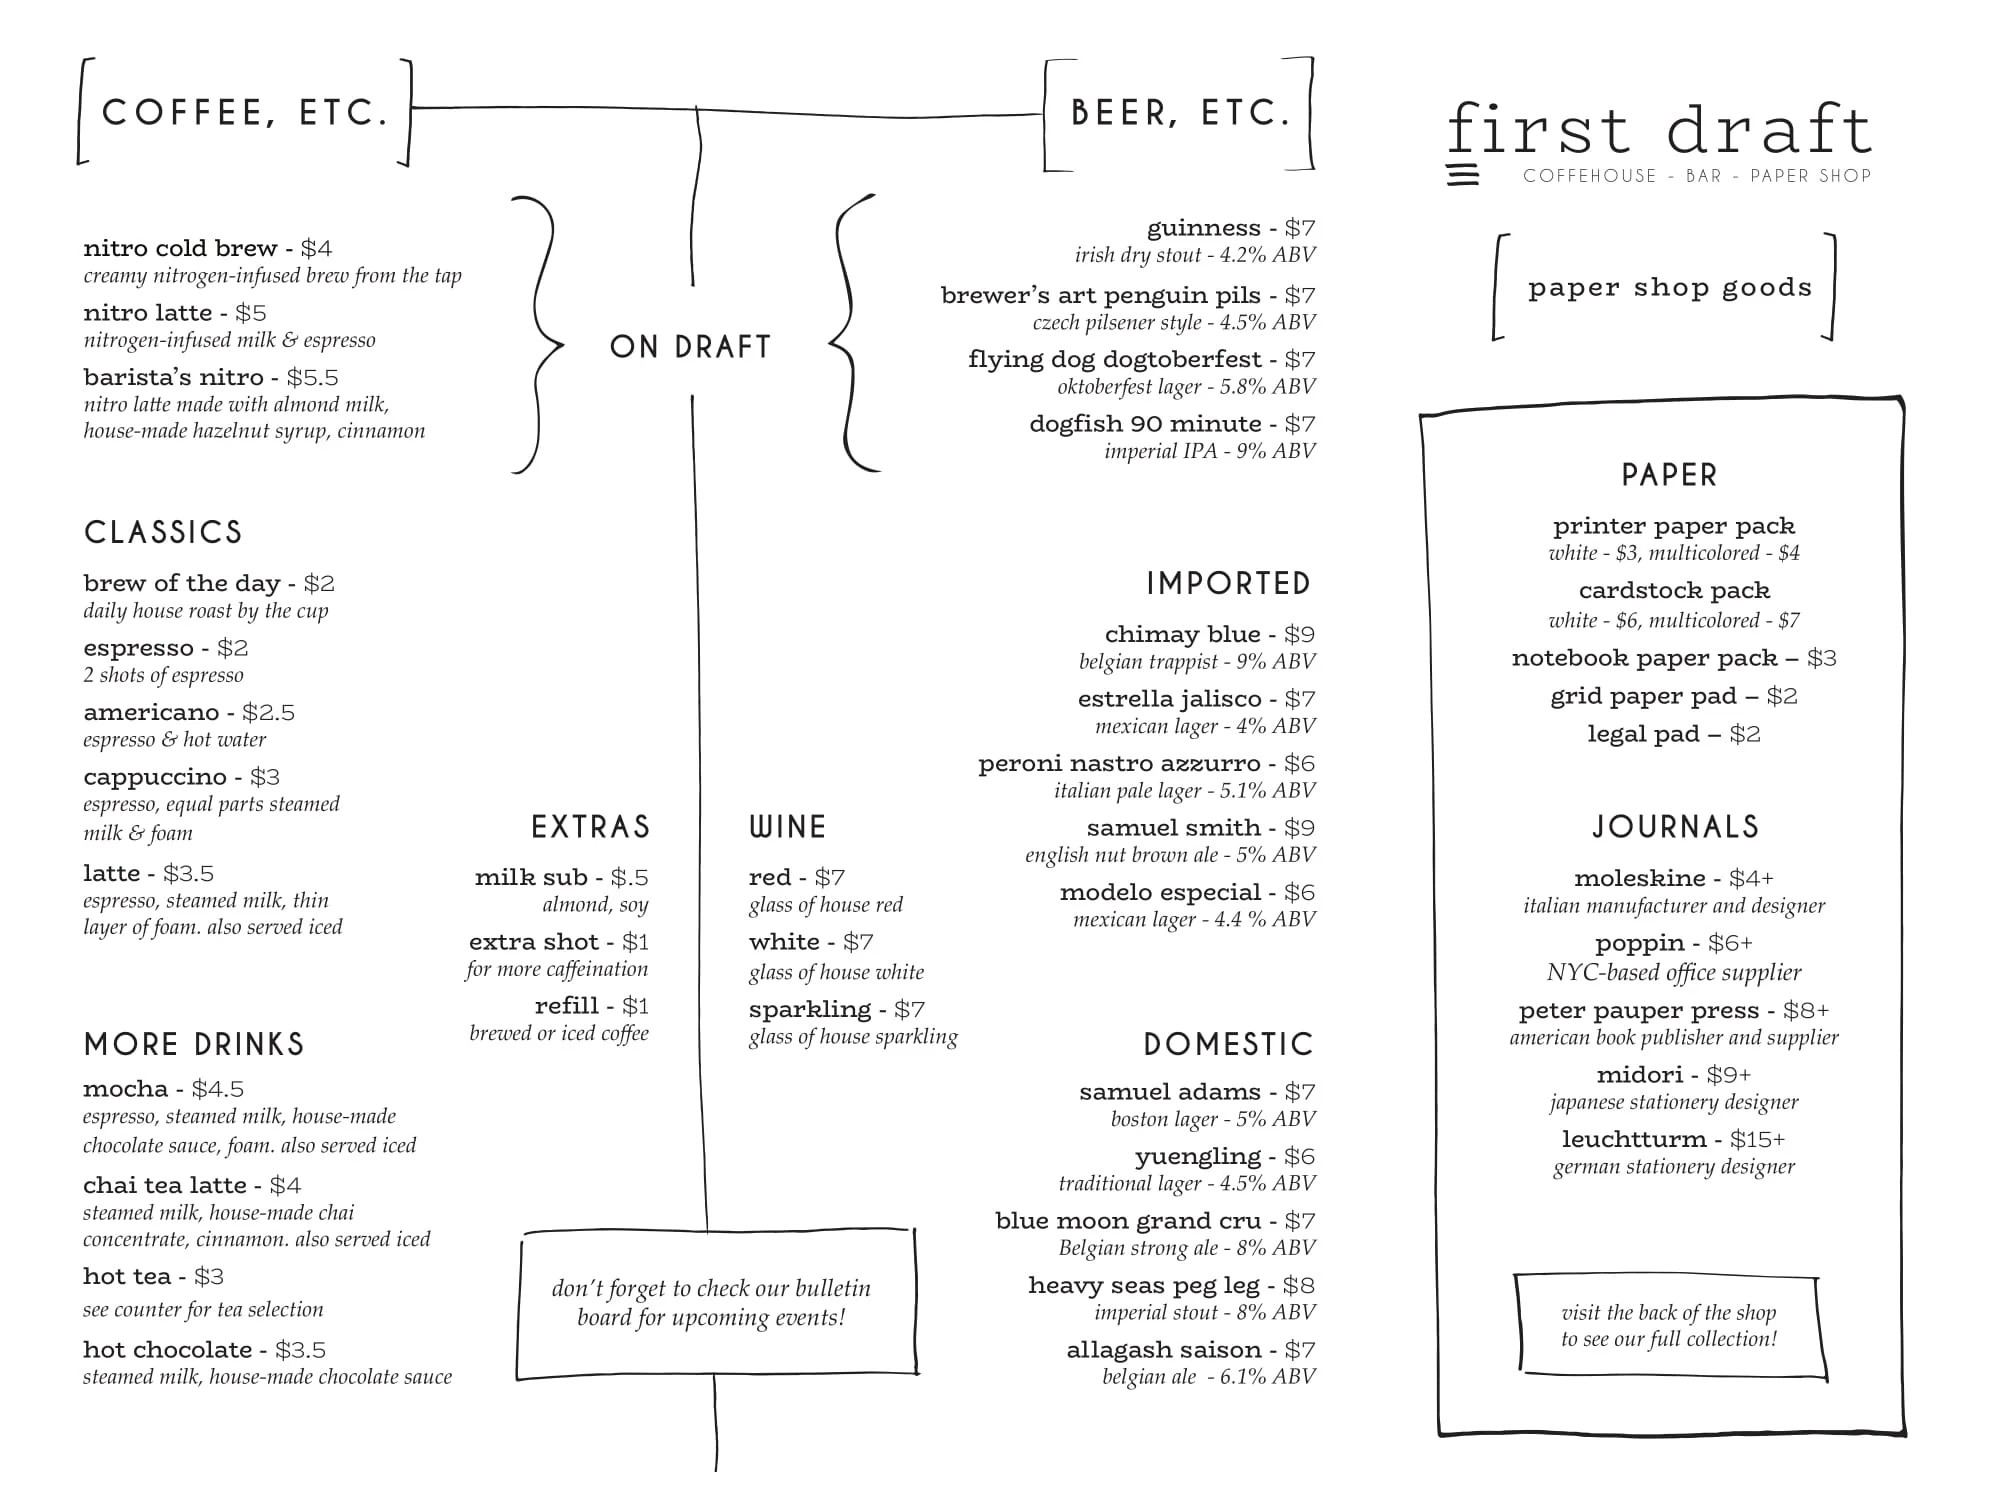 COFFEE, ETC.
nitro cold brew - $4
creamy nitrogen-infused brew from the tap
nitro latte - $5
nitrogen-infused milk & espresso
barista's nitro - $5.5
nitro latte made with almond milk,
house-made hazelnut syrup, cinnamon
ON DRAFT
BEER, ETC.
guinness - $7
irish dry stout - 4.2% ABV
brewer's art penguin pils - $7
czech pilsener style - 4.5% ABV
flying dog dogtoberfest - $7
oktoberfest lager - 5.8% ABV
dogfish 90 minute - $7
imperial IPA - 9% ABV
CLASSICS
brew of the day - $2
daily house roast by the cup
espresso - $2
2 shots of espresso
americano - $2.5
espresso & hot water
cappuccino - $3
espresso, equal parts steamed
milk & foam
latte - $3.5
espresso, steamed milk, thin
layer of foam. also served iced
MORE DRINKS
mocha - $4.5
espresso, steamed milk, house-made
chocolate sauce, foam. also served iced
chai tea latte - $4
steamed milk, house-made chai
concentrate, cinnamon. also served iced
hot tea - $3
see counter for tea selection
hot chocolate - $3.5
steamed milk, house-made chocolate sauce
EXTRAS
milk sub - $.5
almond, soy
extra shot - $1
for more caffeination
refill - $1
brewed or iced coffee
WINE
red - $7
glass of house red
white - $7
glass of house white
sparkling - $7
glass of house sparkling
don't forget to check our bulletin
board for upcoming events!
IMPORTED
chimay blue - $9
belgian trappist - 9% ABV
estrella jalisco - $7
mexican lager - 4% ABV
peroni nastro azzurro - $6
italian pale lager - 5.1% ABV
samuel smith - $9
english nut brown ale - 5% ABV
modelo especial - $6
mexican lager - 4.4 % ABV
DOMESTIC
samuel adams - $7
boston lager - 5% ABV
yuengling - $6
traditional lager - 4.5% ABV
blue moon grand cru - $7
Belgian strong ale - 8% ABV
heavy seas peg leg - $8
imperial stout - 8% ABV
allagash saison - $7
belgian ale - 6.1% ABV
first draft
COFFEHOUSE - BAR - PAPER SHOP
paper shop goods
PAPER
printer paper pack
white - $3, multicolored - $4
cardstock pack
white - $6, multicolored - $7
notebook paper pack – $3
grid paper pad – $2
legal pad – $2
JOURNALS
moleskine - $4+
italian manufacturer and designer
poppin - $6+
NYC-based office supplier
peter pauper press - $8+
american book publisher and supplier
midori - $9+
japanese stationery designer
leuchtturm - $15+
german stationery designer
visit the back of the shop
to see our full collection!